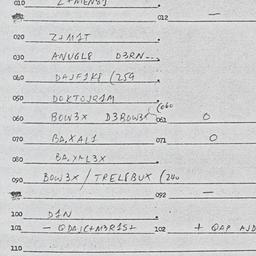 010 Z+MEN81
012 —
020 Z+M1T
030 ANUGL8 D3RN
040 DAJF1K8 (259
050 DOKTOJR1M
060 BOW3X D3BOW3X (060
061 O
070 BA.XAL1
071 O
080 BA.XAL3X
090 BOW3X / TREL8BUX (240
092 —
100 D1N
101 — QDAJC+M3R1S+ 102 + QAP AJD
110